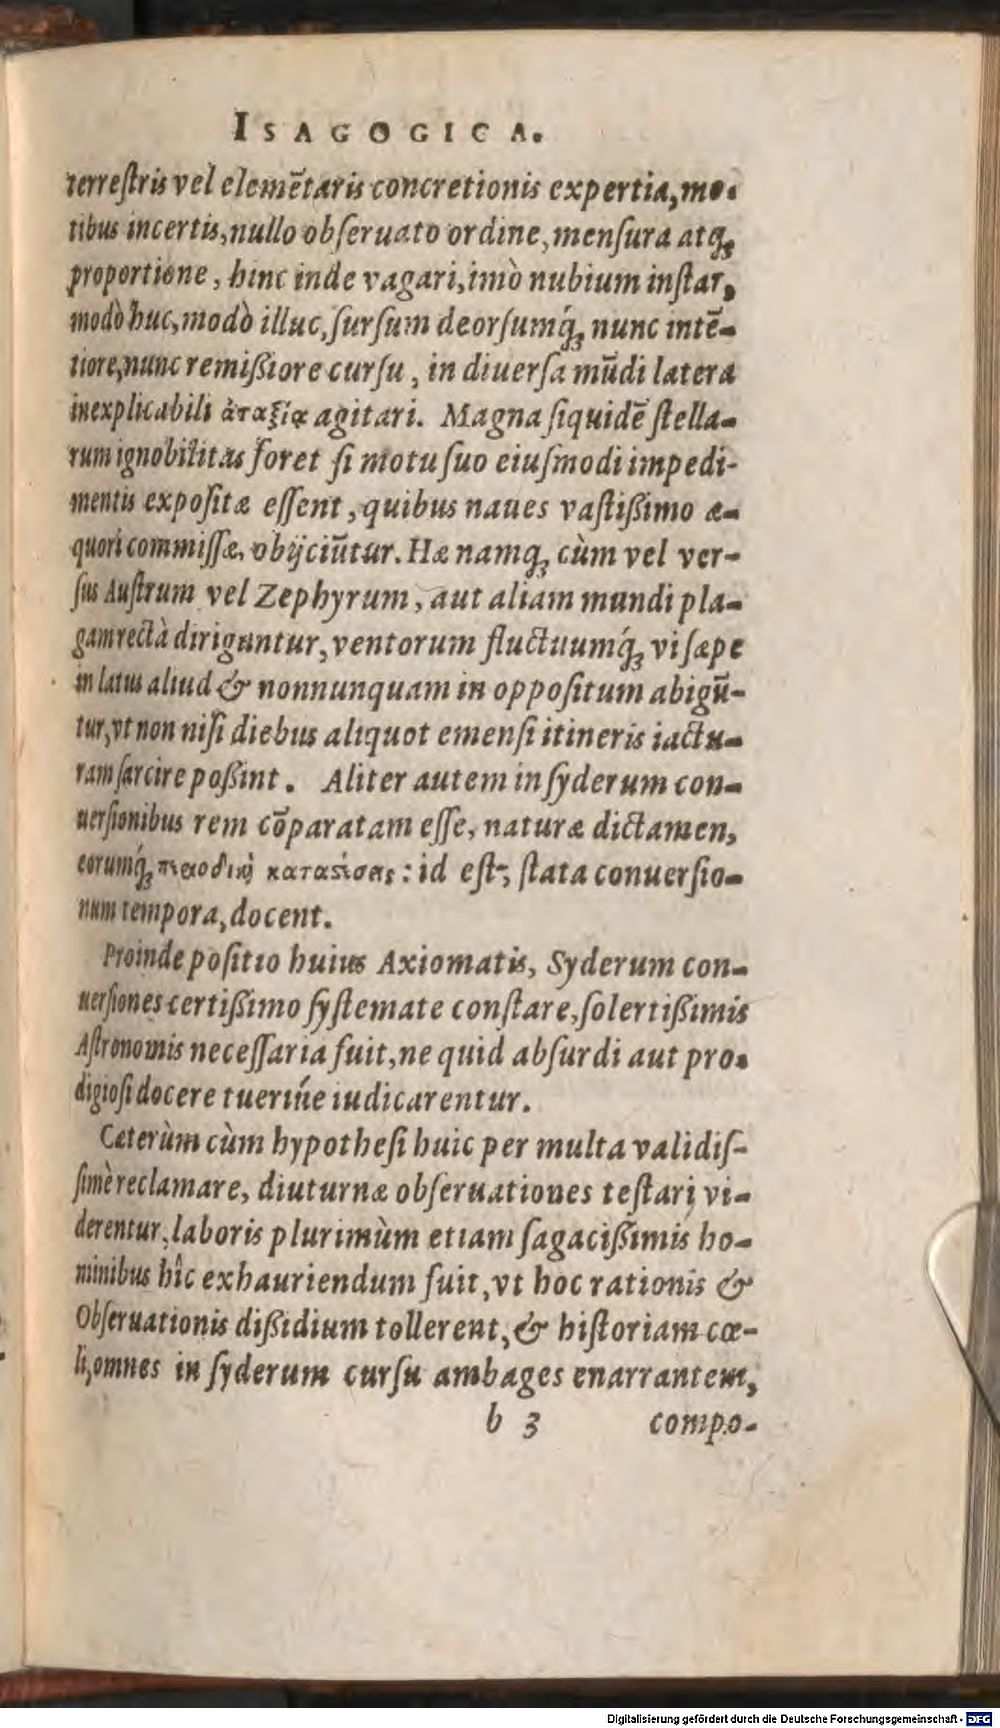 ISAGOGICA.
terreſtris vel elemẽtaris concretionis expertia, mo-
tibus incertis, nullo obſeruato ordine, menſura atq;
proportione, hinc inde vagari, imò nubium inſtar,
modò huc, modò illuc, ſurſum deorſumq́; nunc intẽ-
tiore, nunc remißiore curſu, in diuerſa mũdi latera
inexplicabili ἀταξίᾳ agitari. Magna ſiquidẽ ſtella-
rum ignobilitas foret ſi motu ſuo eiuſmodi impedi-
mentis expoſitæ eſſent, quibus naues vaſtißimo æ-
quori commiſſæ, obijciũtur. Hæ namq; cùm vel ver-
ſus Auſtrum vel Zephyrum, aut aliam mundi pla-
gam rectà diriguntur, ventorum fluctuumq́; vi ſæpe
in latus aliud & nonnunquam in oppoſitum abigũ-
tur, vt non niſi diebus aliquot emenſi itineris iactu-
ram ſarcire poßint. Aliter autem in ſyderum con-
uerſionibus rem cõparatam eſſe, naturæ dictamen,
eorumq́; : id eſt, ſtata conuerſio-
num tempora, docent.
Proinde poſitio huius Axiomatis, Syderum con-
uerſiones certißimo ſyſtemate conſtare, ſolertißimis
Aſtronomis neceſſaria fuit, ne quid abſurdi aut pro-
digioſi docere tueriúe iudicarentur.
Cæterùm cùm hypotheſi huic per multa validiſ-
ſimè reclamare, diuturnæ obſeruationes teſtari vi-
derentur, laboris plurimùm etiam ſagacißimis ho-
minibus hîc exhauriendum fuit, vt hoc rationis &
Obſeruationis dißidium tollerent, & hiſtoriam cœ-
li, omnes in ſyderum curſu ambages enarrantem,
b 3 compo-
Digitalisierung gefördert durch die Deutsche Forschungsgemeinschaft - DFG